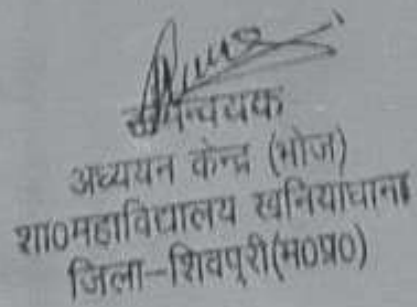 समन्वयक
अध्ययन केन्द्र (भोज)
शा0महाविद्यालय खनियाधाना
जिला-शिवपुरी(म0प्र0)